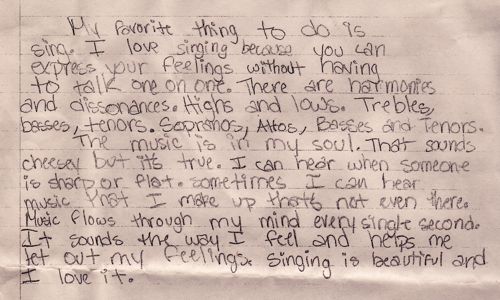 My favorite thing to do is
sing. I love singing because you can
express your feelings without having
to talk one on one. There are harmonies
and dissonances. Highs and lows. Trebles,
basses, tenors. Sopranos, Altos, Basses and Tenors.
The music is in my soul. That sounds
cheesey but it's true. I can hear when someone
is sharp or flat. sometimes I can hear
music that I make up that's not even there.
Music flows through my mind every single second.
It sounds the way I feel and helps me
let out my feelings. Singing is beautiful and
I love it.